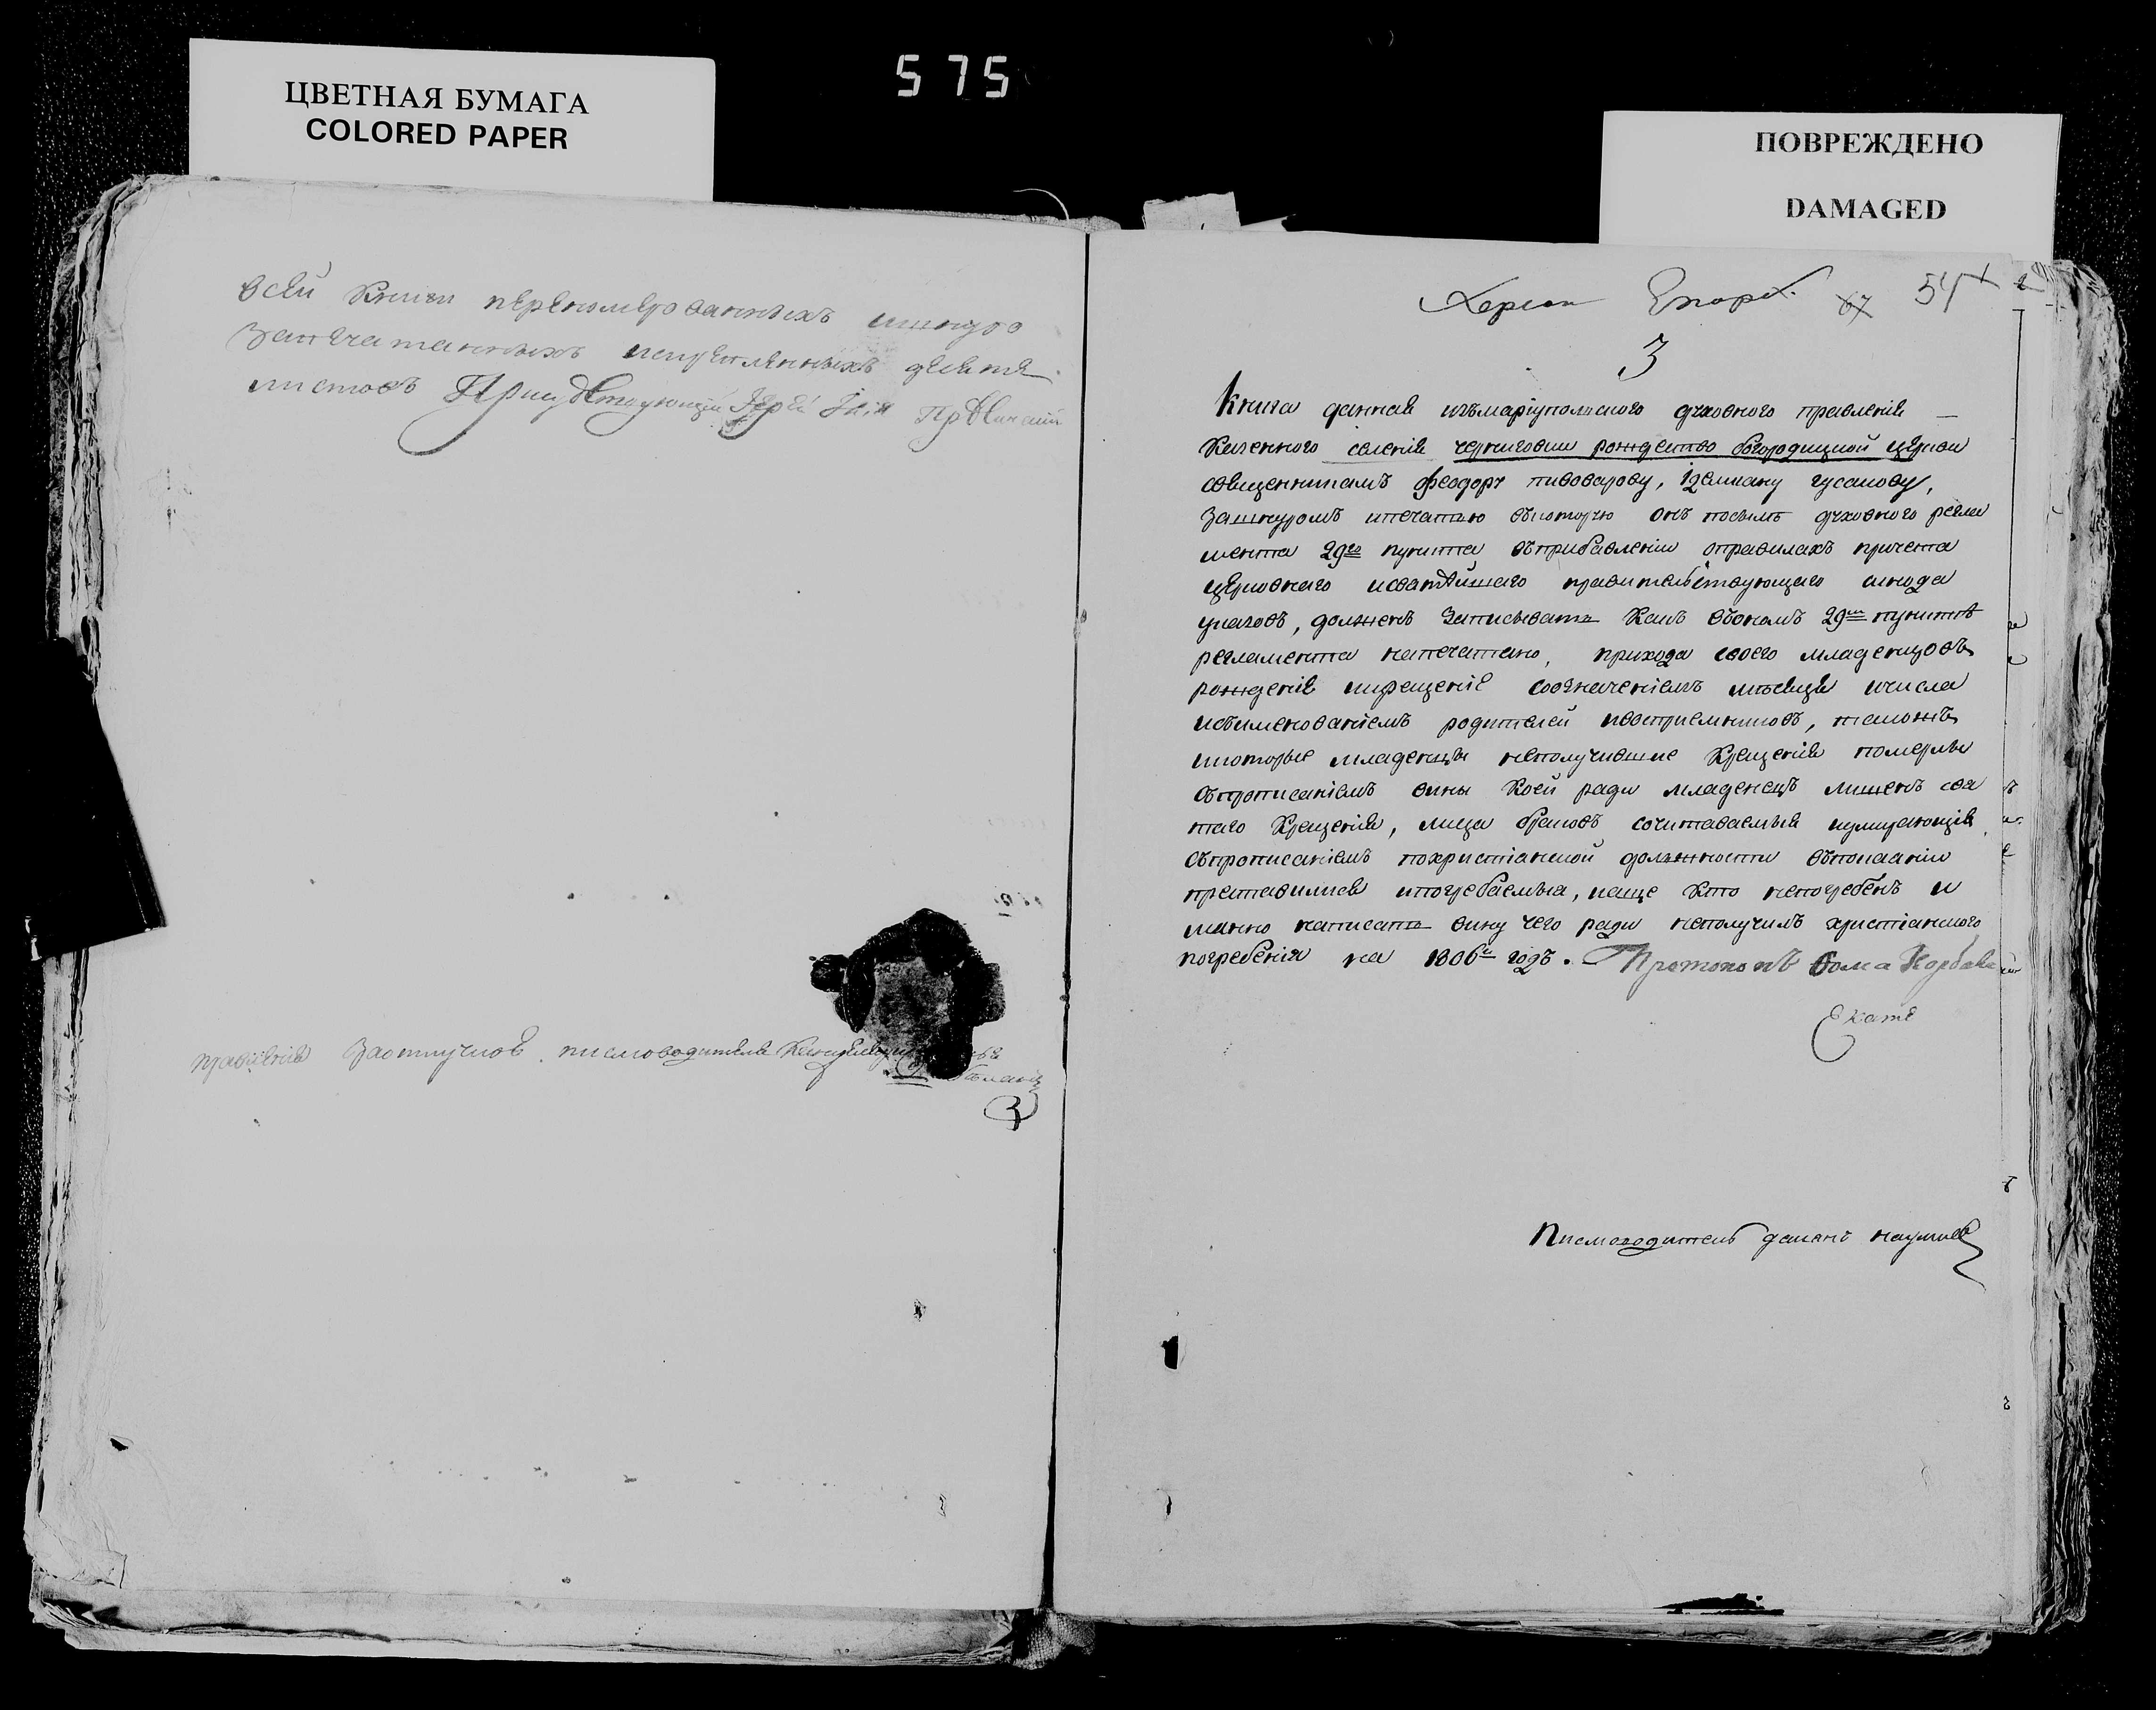 575
ЦВЕТНАЯ БУМАГА
COLORED PAPER
ПОВРЕЖДЕНО
DAMAGED
всей книги перенумерованныхъ ишнуро
запечатанныхъ искрепленныхъ десять
листовъ Присудствующій Іерей Іоаннъ
правленія письмоводителя
Херсон Епарх. 67 54
3
Книга данная измаріупольского духовного правленія
казенного селенія черниговки рождество богородицкой церкви
священникамъ феодору пивоварову, гусакову,
зашнуромъ ипечатью вкоторую онъ посилѣ духовного регла
мента 29го пункта вприбавленіи оправилахъ причета
церковнаго исвятѣйшаго правительствующаго синода
указовъ, долженъ записывать какъ въономъ 29м пунктѣ
регламента напечатано, прихода своего младенцовъ
рожденія икрещенія созначеніемъ мѣсяца ичисла
исименованіемъ родителей ивосприемниковъ, такожъ
икоторые младенцы неполучившие крещенія померли
спрописаніемъ вины коей ради младенецъ лишенъ свя
таго крещенія, лица бракомъ сочитаваемыя иумирающія
спрописаніемъ похристіанской должности въпокаяніи
преставилися ипогребаемыя, иаще кто непогребенъ и
имянно написать вину чего ради неполучилъ христіанского
погребенія на 1806й годъ. Протопопъ Фома
Екате
Писмоводитель диаконъ наумовъ